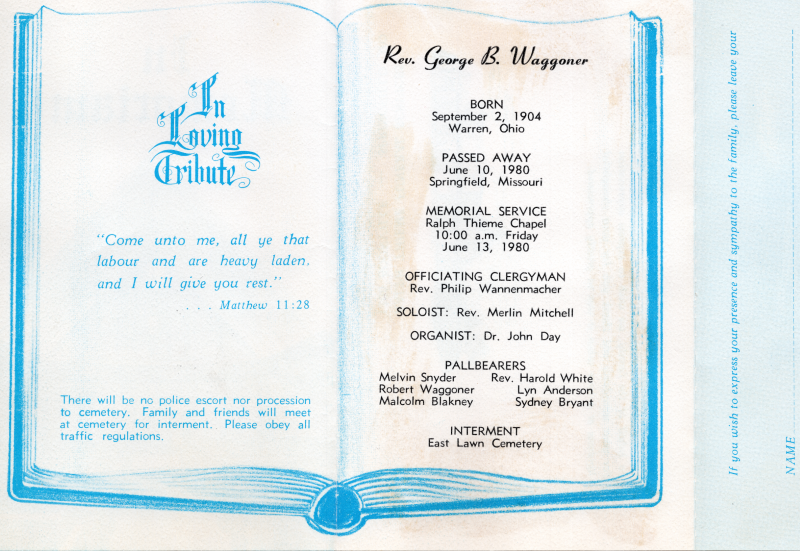 In
Loving
Tribute
"Come unto me, all ye that
labour and are heavy laden,
and I will give you rest."
. . . . Matthew 11:28
There will be no police escort nor procession
to cemetery. Family and friends will meet
at cemetery for interment. Please obey all
traffic regulations.
Rev. George B. Waggoner
BORN
September 2, 1904
Warren, Ohio
PASSED AWAY
June 10, 1980
Springfield, Missouri
MEMORIAL SERVICE
Ralph Thieme Chapel
10:00 a.m. Friday
June 13, 1980
OFFICIATING CLERGYMAN
Rev. Philip Wannenmacher
SOLOIST: Rev. Merlin Mitchell
ORGANIST: Dr. John Day
PALLBEARERS
Melvin Snyder Rev. Harold White
Robert Waggoner Lyn Anderson
Malcolm Blakney Sydney Bryant
INTERMENT
East Lawn Cemetery
If you wish to express your presence and sympathy to the family, please leave your
NAME